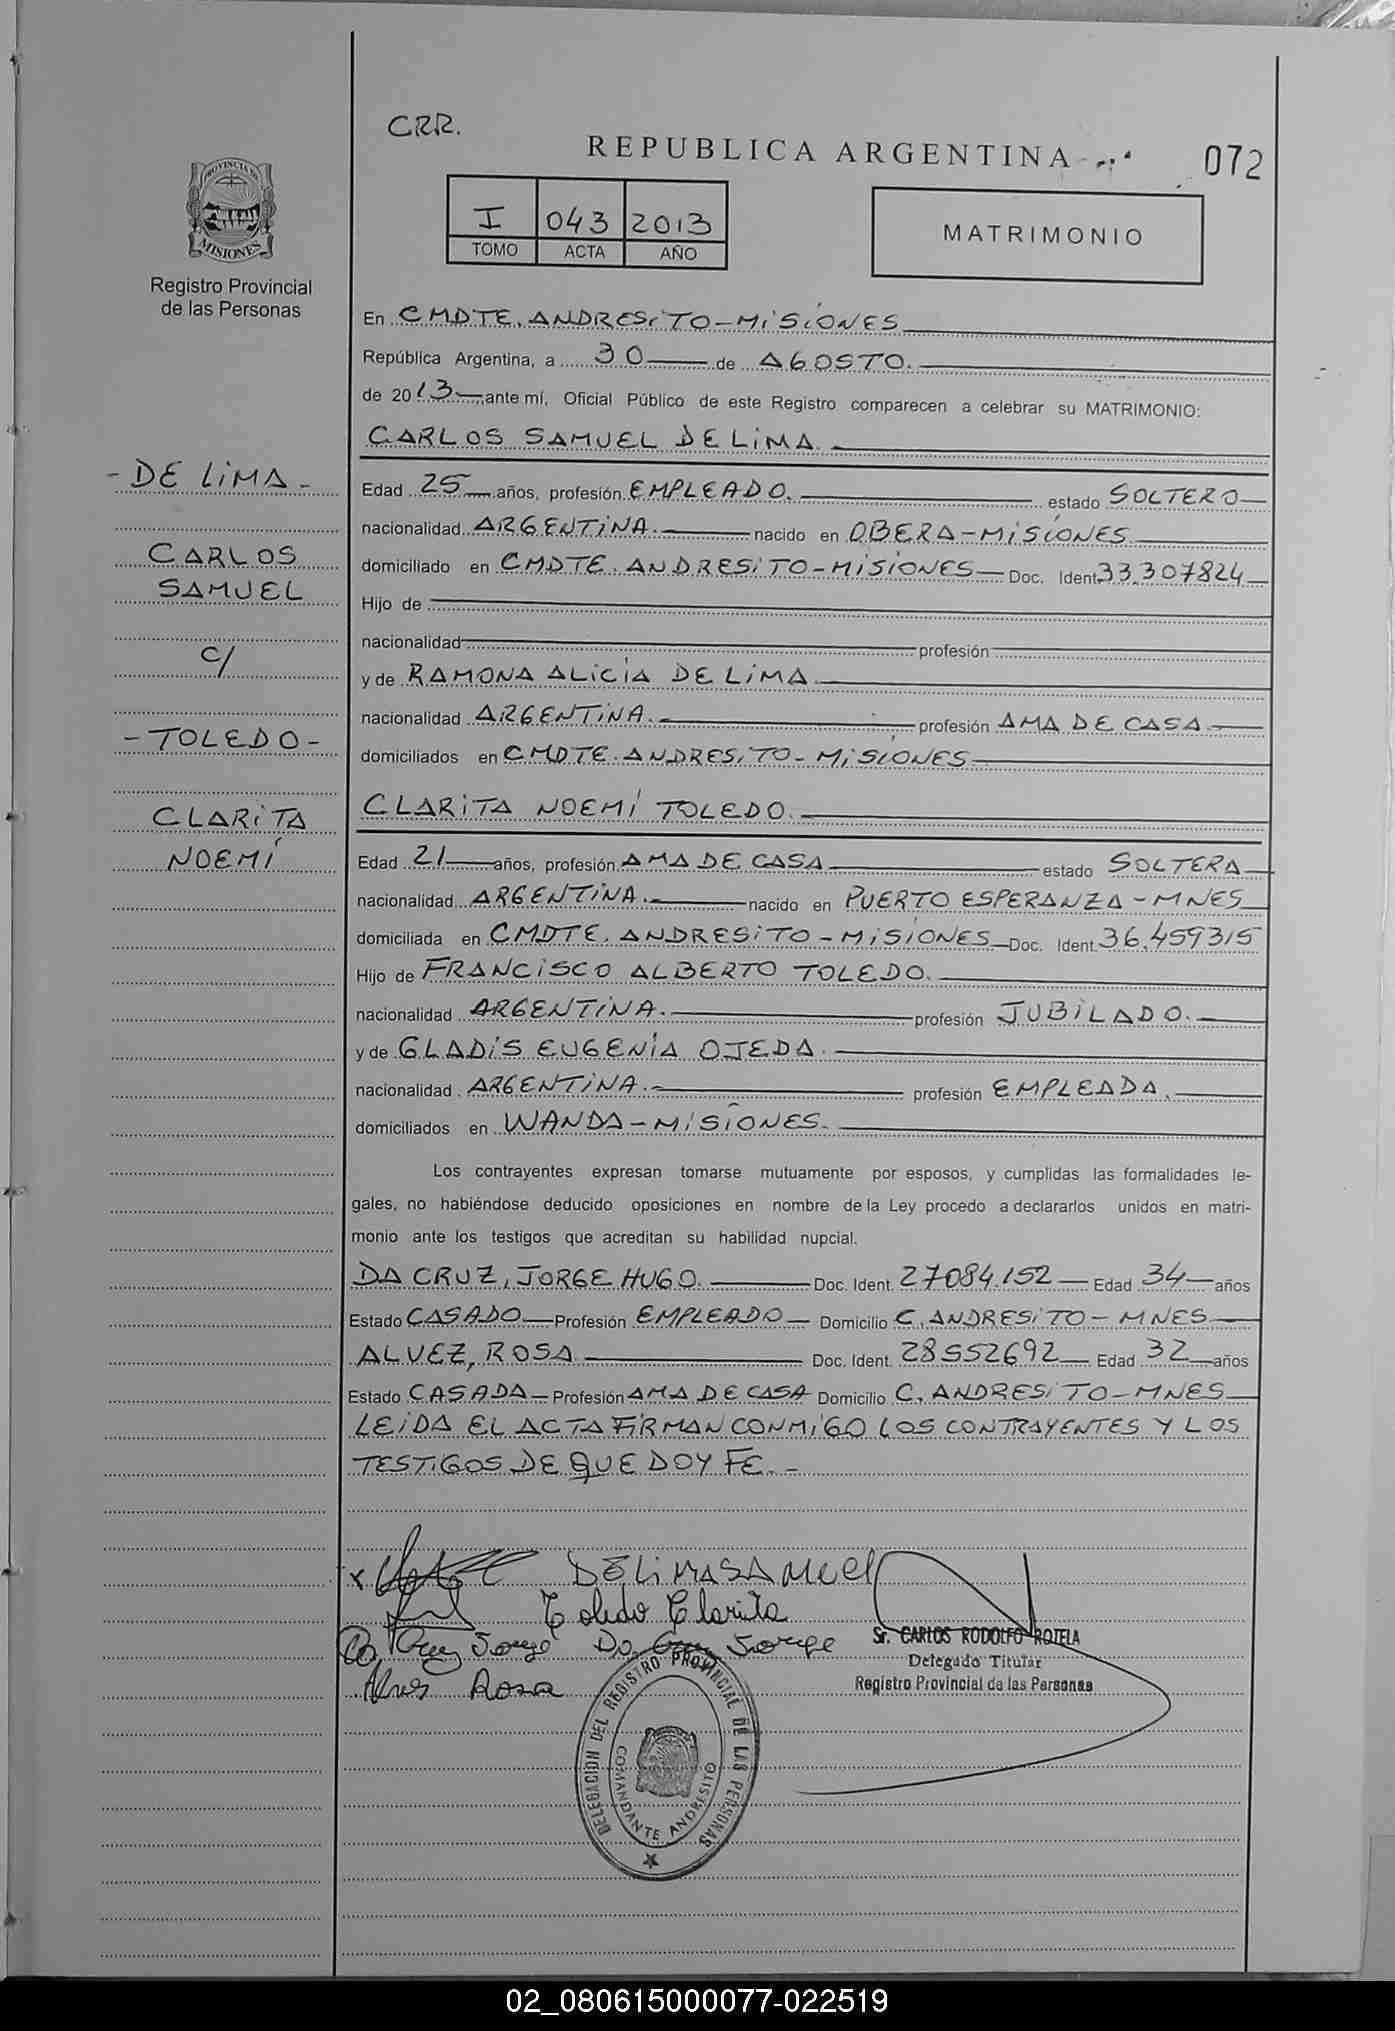 CRR.
REPUBLICA ARGENTINA
072
PROVINCIA DE
MISIONES
Registro Provincial
de las Personas
I 043 2013
TOMO ACTA AÑO
MATRIMONIO
En CMDTE. ANDRESITO-MISIONES
República Argentina, a 30 de AGOSTO.
de 2013 ante mí, Oficial Público de este Registro comparecen a celebrar su MATRIMONIO:
CARLOS SAMUEL DE LIMA.
- DE LIMA -
CARLOS
SAMUEL
C/
- TOLEDO -
CLARITA
NOEMÍ
Edad 25 años, profesión EMPLEADO. estado SOLTERO
nacionalidad ARGENTINA. nacido en OBERA-MISIONES
domiciliado en CMDTE. ANDRESITO-MISIONES Doc. Ident. 33.307824
Hijo de
nacionalidad profesión
y de RAMONA ALICIA DE LIMA
nacionalidad ARGENTINA. profesión AMA DE CASA.
domiciliados en CMDTE. ANDRESITO-MISIONES
CLARITA NOEMÍ TOLEDO.
Edad 21 años, profesión AMA DE CASA estado SOLTERA
nacionalidad ARGENTINA. nacido en PUERTO ESPERANZA-MNES
domiciliada en CMDTE. ANDRESITO-MISIONES Doc. Ident. 36.459315
Hijo de FRANCISCO ALBERTO TOLEDO.
nacionalidad ARGENTINA. profesión JUBILADO.
y de GLADIS EUGENIA OJEDA.
nacionalidad ARGENTINA. profesión EMPLEADA.
domiciliados en WANDA-MISIONES.
Los contrayentes expresan tomarse mutuamente por esposos, y cumplidas las formalidades le-
gales, no habiéndose deducido oposiciones en nombre de la Ley procedo a declararlos unidos en matri-
monio ante los testigos que acreditan su habilidad nupcial.
DA CRUZ, JORGE HUGO. Doc. Ident. 27084.152 Edad 34 años
Estado CASADO Profesión EMPLEADO Domicilio C. ANDRESITO-MNES
ALVEZ, ROSA Doc. Ident. 28552692 Edad 32 años
Estado CASADA Profesión AMA DE CASA Domicilio C. ANDRESITO-MNES
LEIDA EL ACTA FIRMAN CONMIGO LOS CONTRAYENTES Y LOS
TESTIGOS DE QUE DOY FE.-
x DELIMA SAMUEl
Toledo Clarita
Da Cruz Jorge Da Cruz Jorge
Alves Rosa
Sr. CARLOS RODOLFO ROTELA
Delegado Titular
Registro Provincial de las Personas
DELEGACION DEL REGISTRO PROVINCIAL DE LAS PERSONAS
COMANDANTE ANDRESITO
02_080615000077-022519